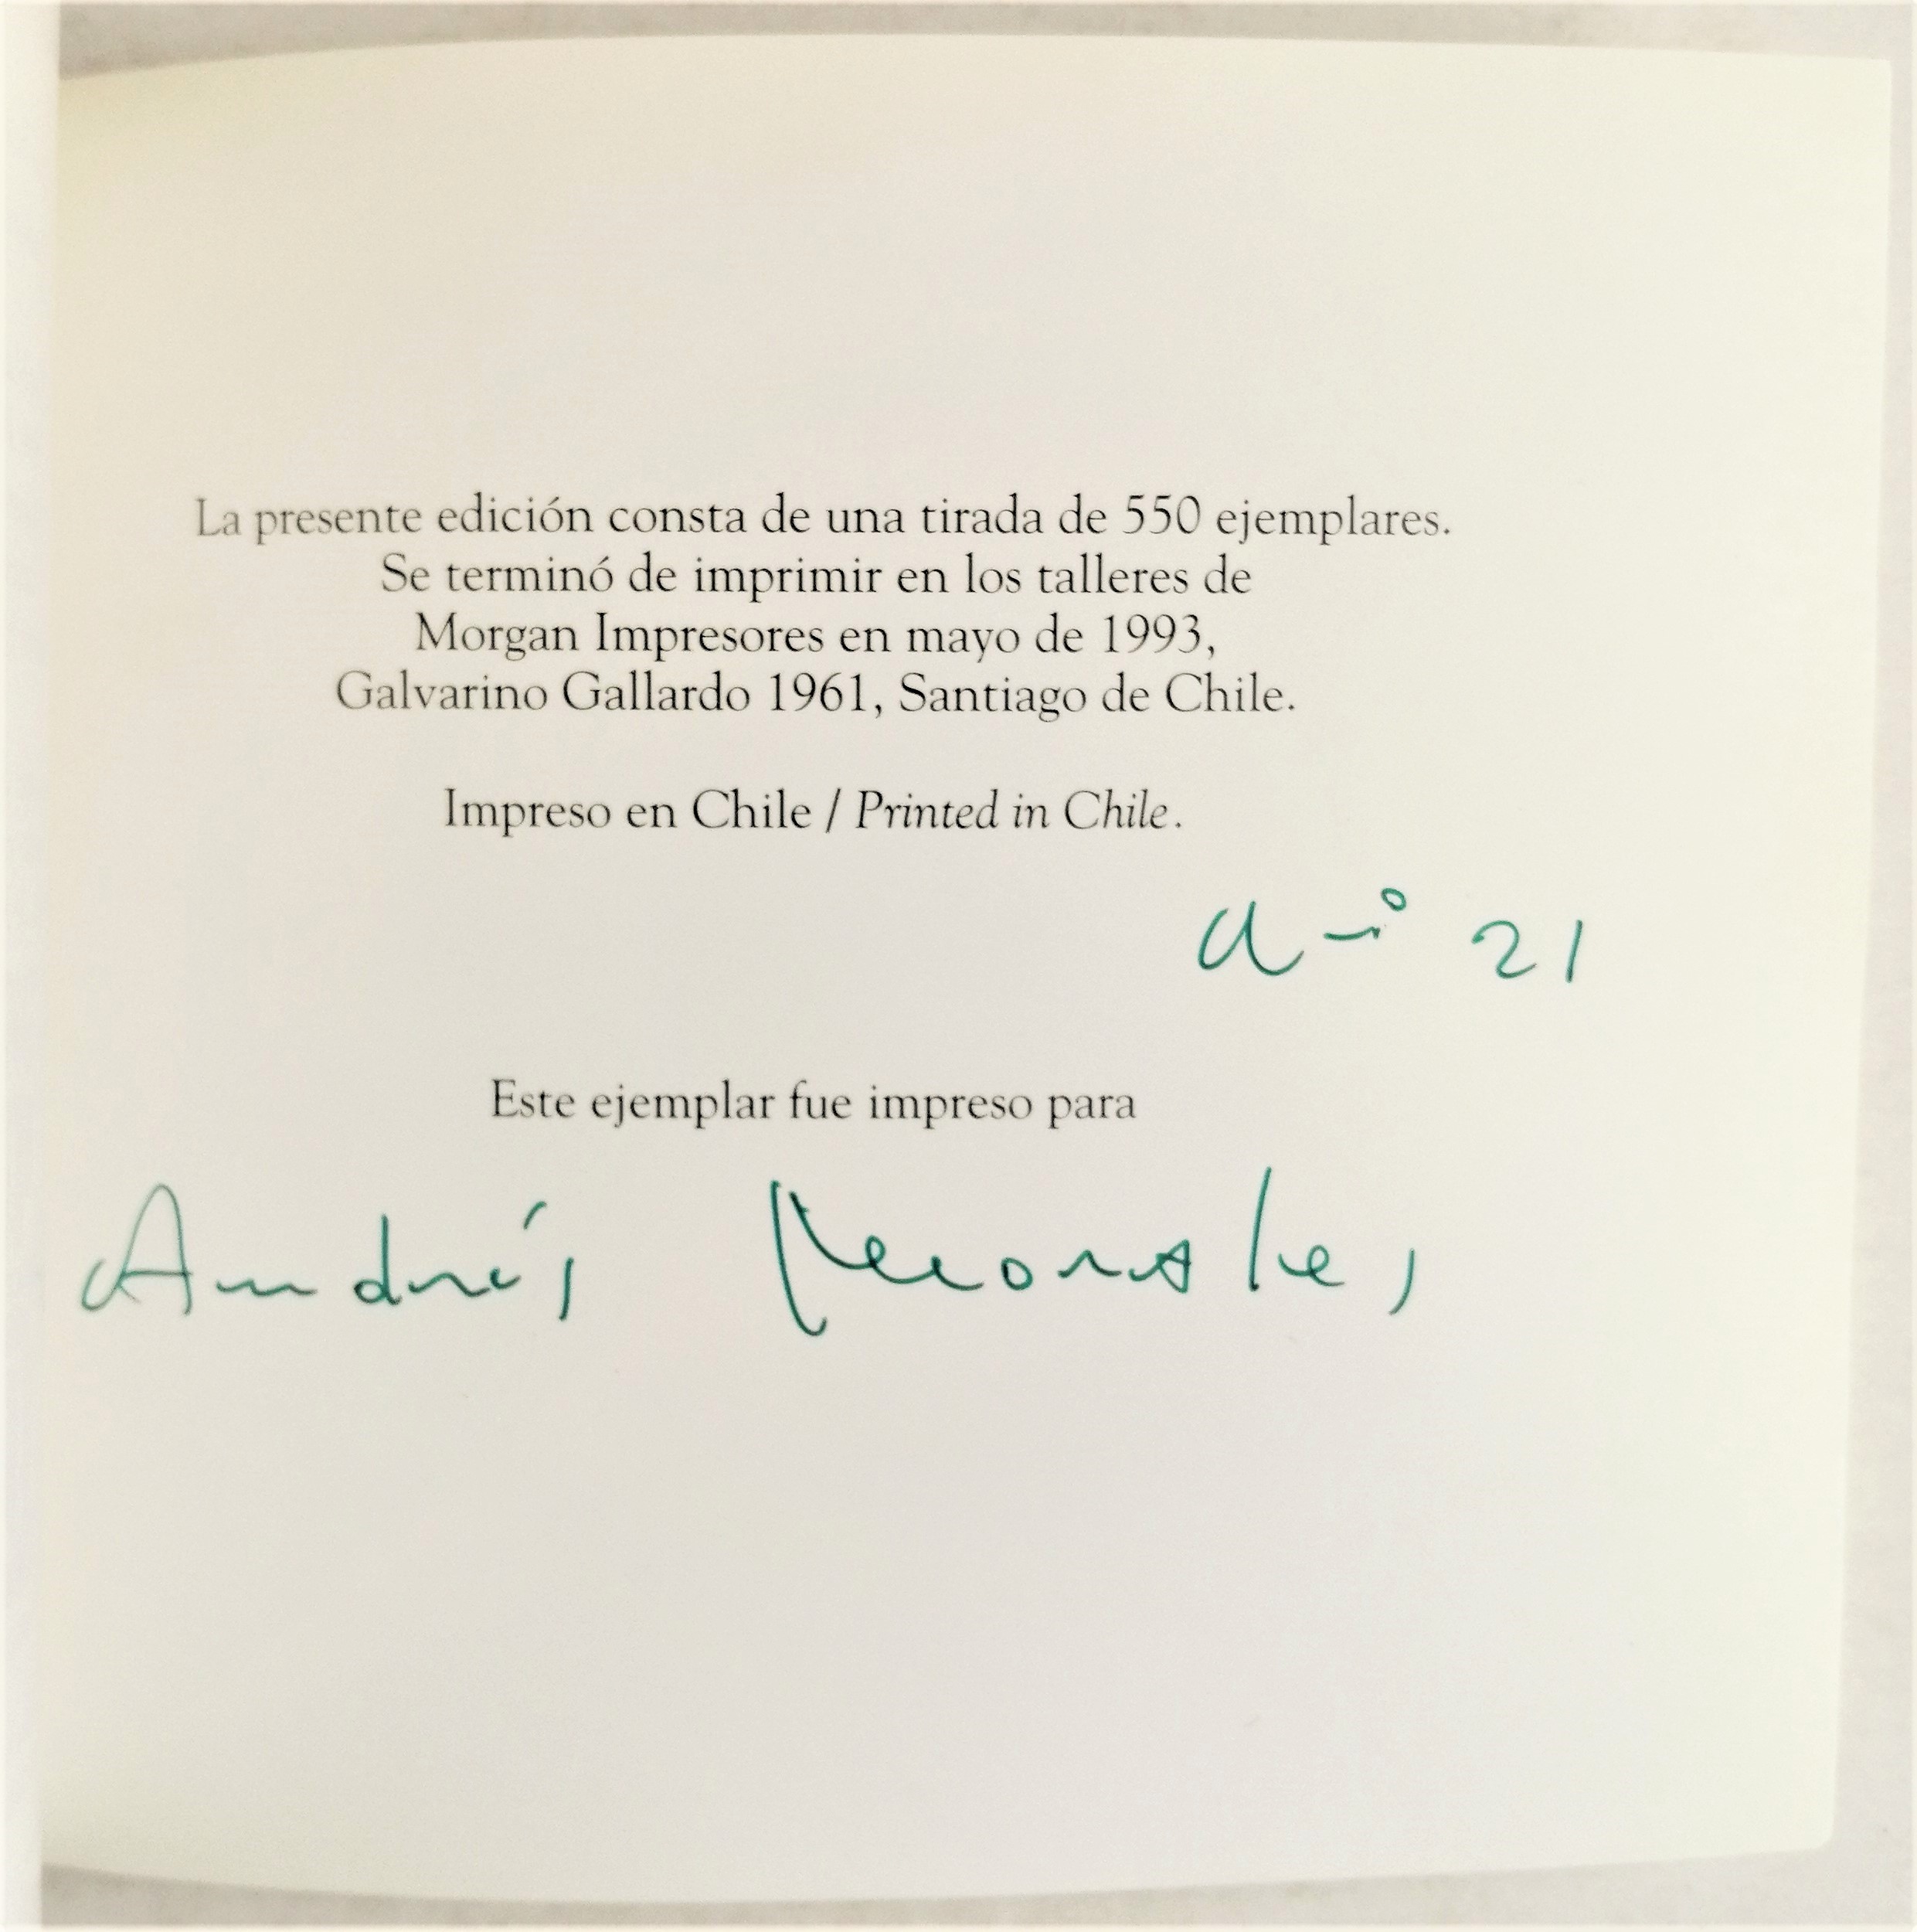 La presente edición consta de una tirada de 550 ejemplares.
Se terminó de imprimir en los talleres de
Morgan Impresores en mayo de 1993,
Galvarino Gallardo 1961, Santiago de Chile.
Impreso en Chile / Printed in Chile.
21
Este ejemplar fue impreso para
Andrés Morales